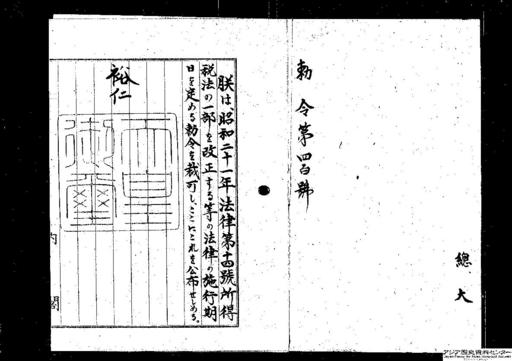 勅令第四百號
總大
朕は、昭和二十一年法律第十四號所得
税法の一部を改正する等の法律の施行期
日を定める勅令を裁可し、ここにこれを公布せしめる。
裕仁
内閣
アジア歴史資料センター